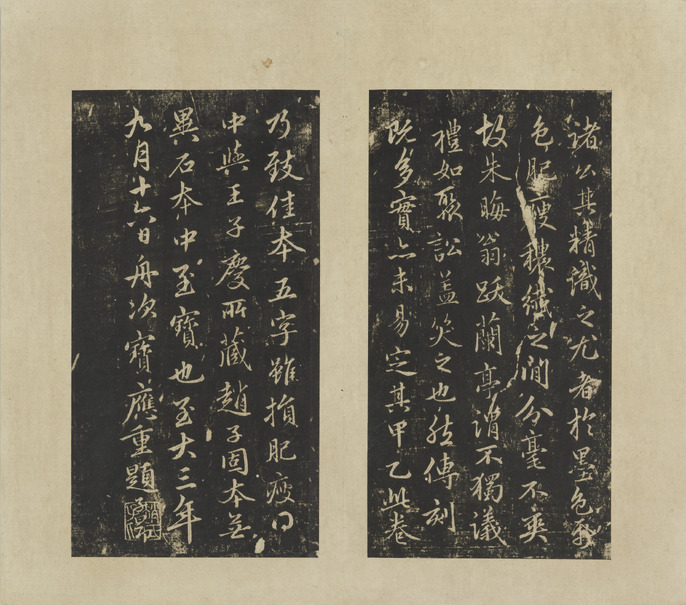 諸公其精識之尤者於墨色紙
色肥瘦穠纖之間分毫不爽
故朱晦翁跋蘭亭謂不獨議
禮如聚訟蓋笑之也然傳刻
既多實亦未易定其甲乙此卷
乃致佳本五字雖損肥瘦得
中與王子慶所藏趙子固本無
異石本中至寶也至大三年
九月十六日舟次寶應重題